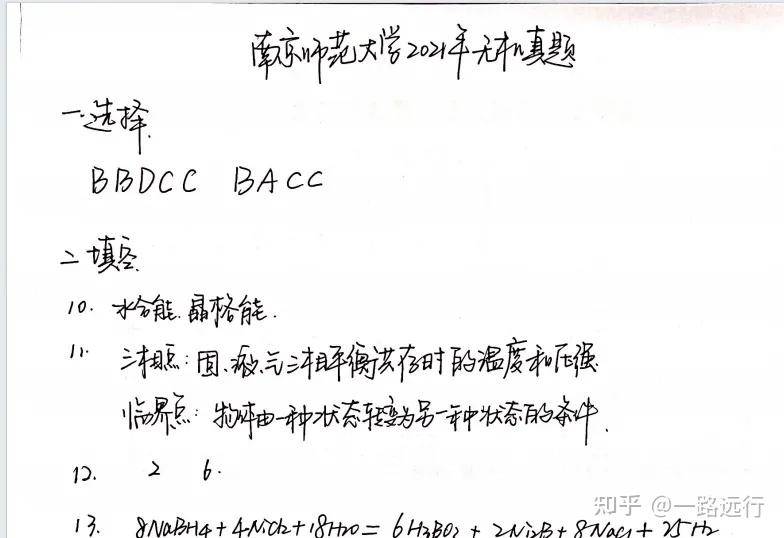 南京师范大学2021年无机真题
一.选择.
BBDCC BACC
二填空.
10. 水合能.晶格能.
11. 三相点:固、液、气三相平衡共存时的温度和压强.
临界点:物体由一种状态转变为另一种状态的条件.
12. 2 6.
13. 8NaBH4+4NiCl2+18H2O = 6H3BO3 + 2Ni2B+8NaCl+25H2
知乎 @一路远行